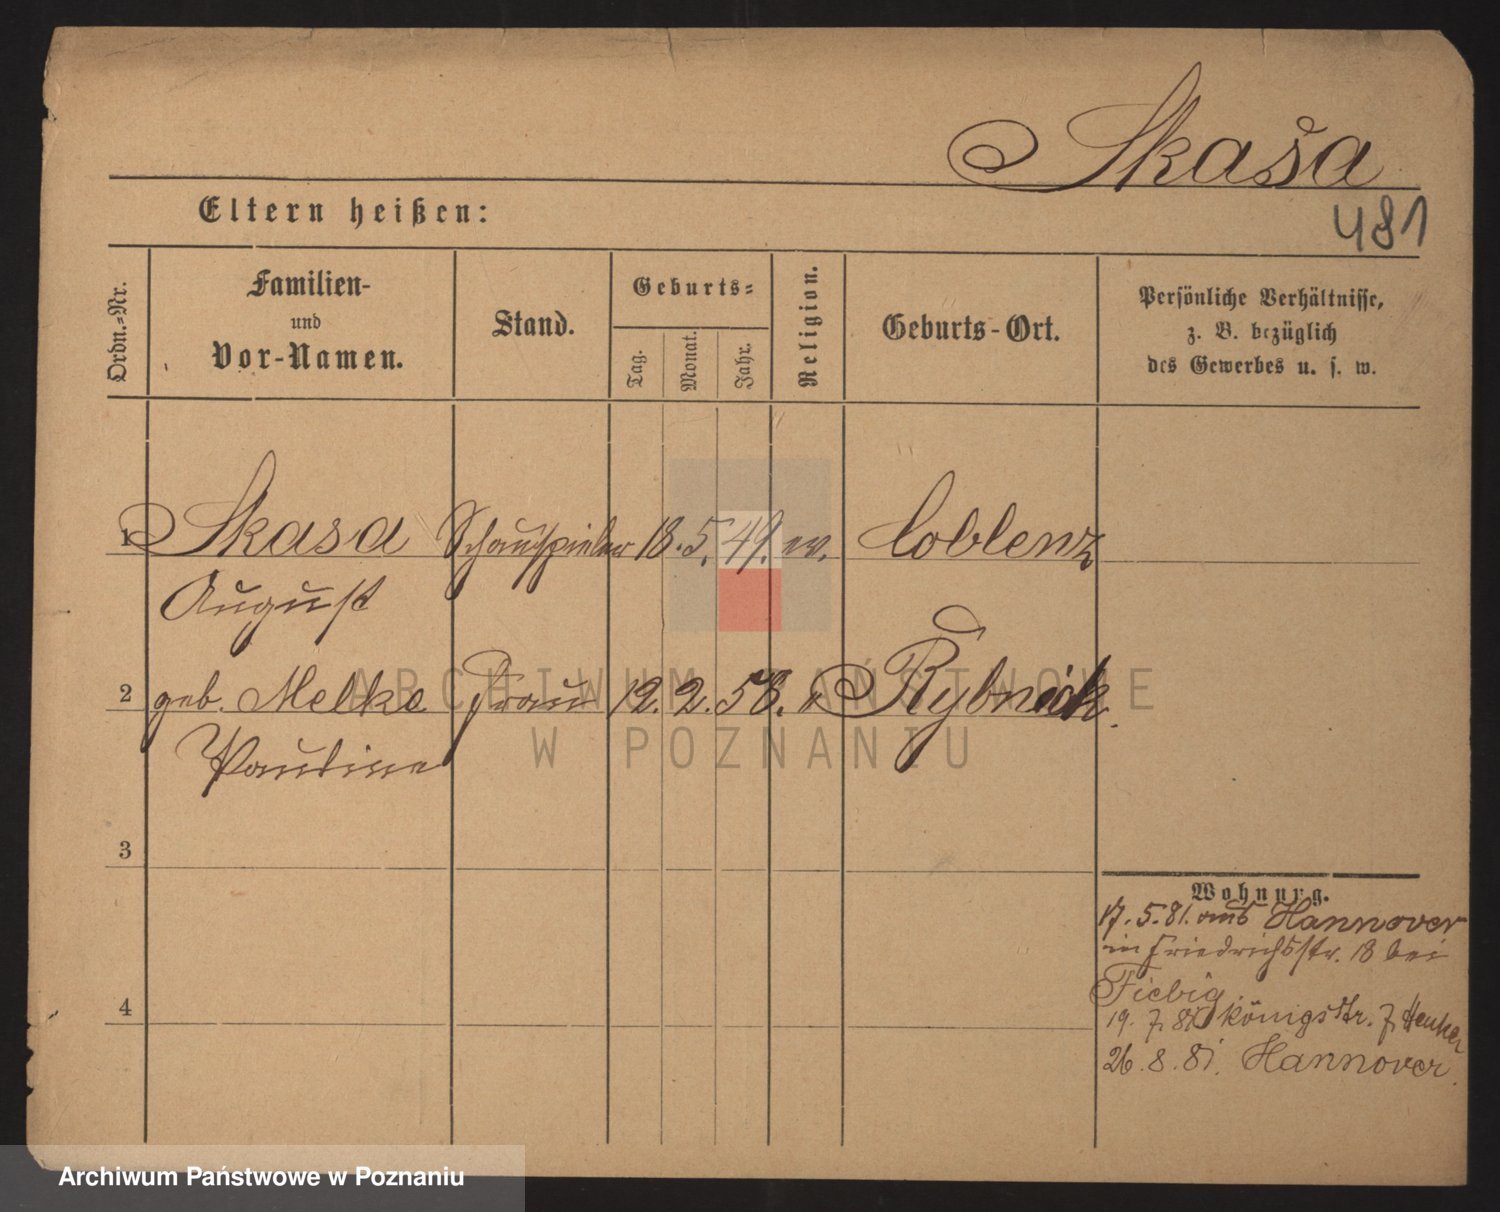 Skaša
Eltern heißen:
481
Ordn.-Nr.
Familien-
und
Vor-Namen.
Stand.
Geburts-
Tag.
Monat.
Jahr.
Religion.
Geburts-Ort.
Persönliche Verhältnisse,
z. B. bezüglich
des Gewerbes u. s. w.
1 Skasa Schauspieler 18. 5. 49. ev. Coblenz
August
2 geb. Melke Frau 12. 2. 58. " Rybnick.
Pauline
3
4
Wohnung.
17. 5. 81. aus Hannover
in Friedrichsstr. 18 bei
Fiebig
19. 7. 81 Königsstr. 7
26. 8. 81. Hannover.
ARCHIWUM PAŃSTWOWE
W POZNANIU
Archiwum Państwowe w Poznaniu